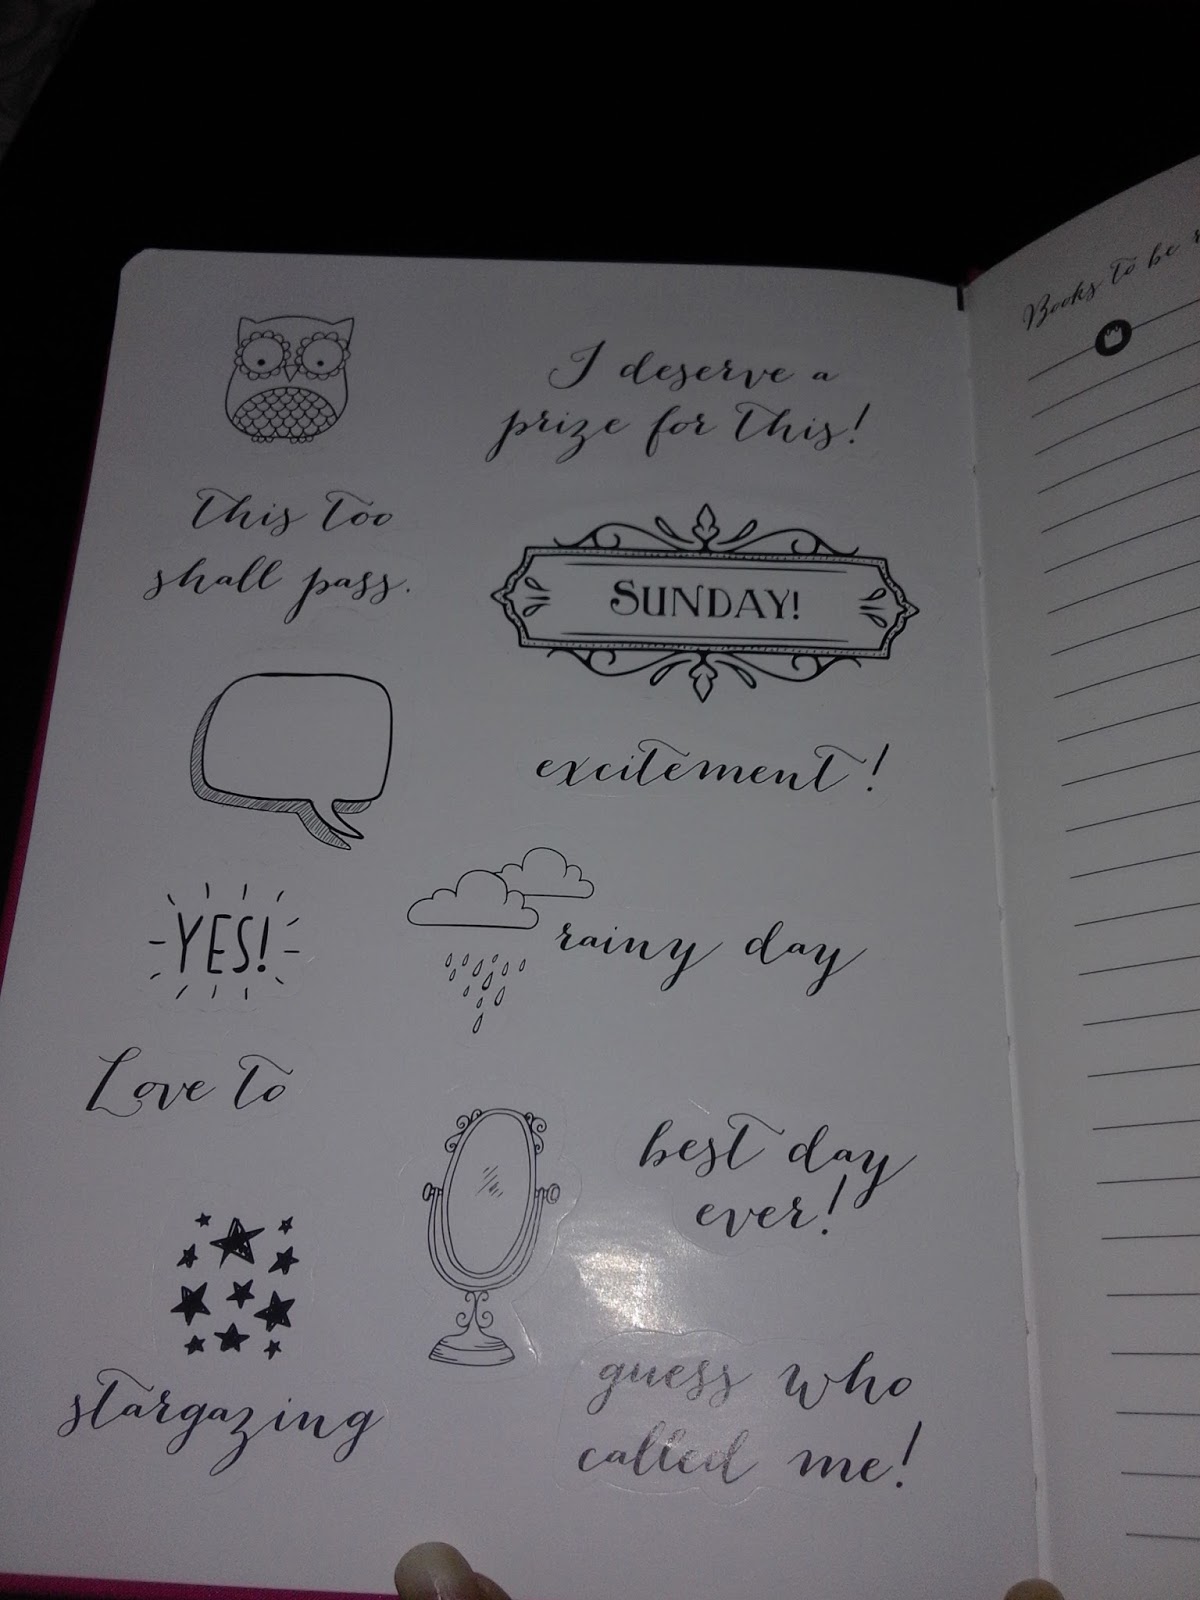 I deserve a
prize for this!
this too
shall pass.
SUNDAY!
excitement!
YES!
rainy day
Love to
best day
ever!
stargazing
guess who
called me!
Books to be